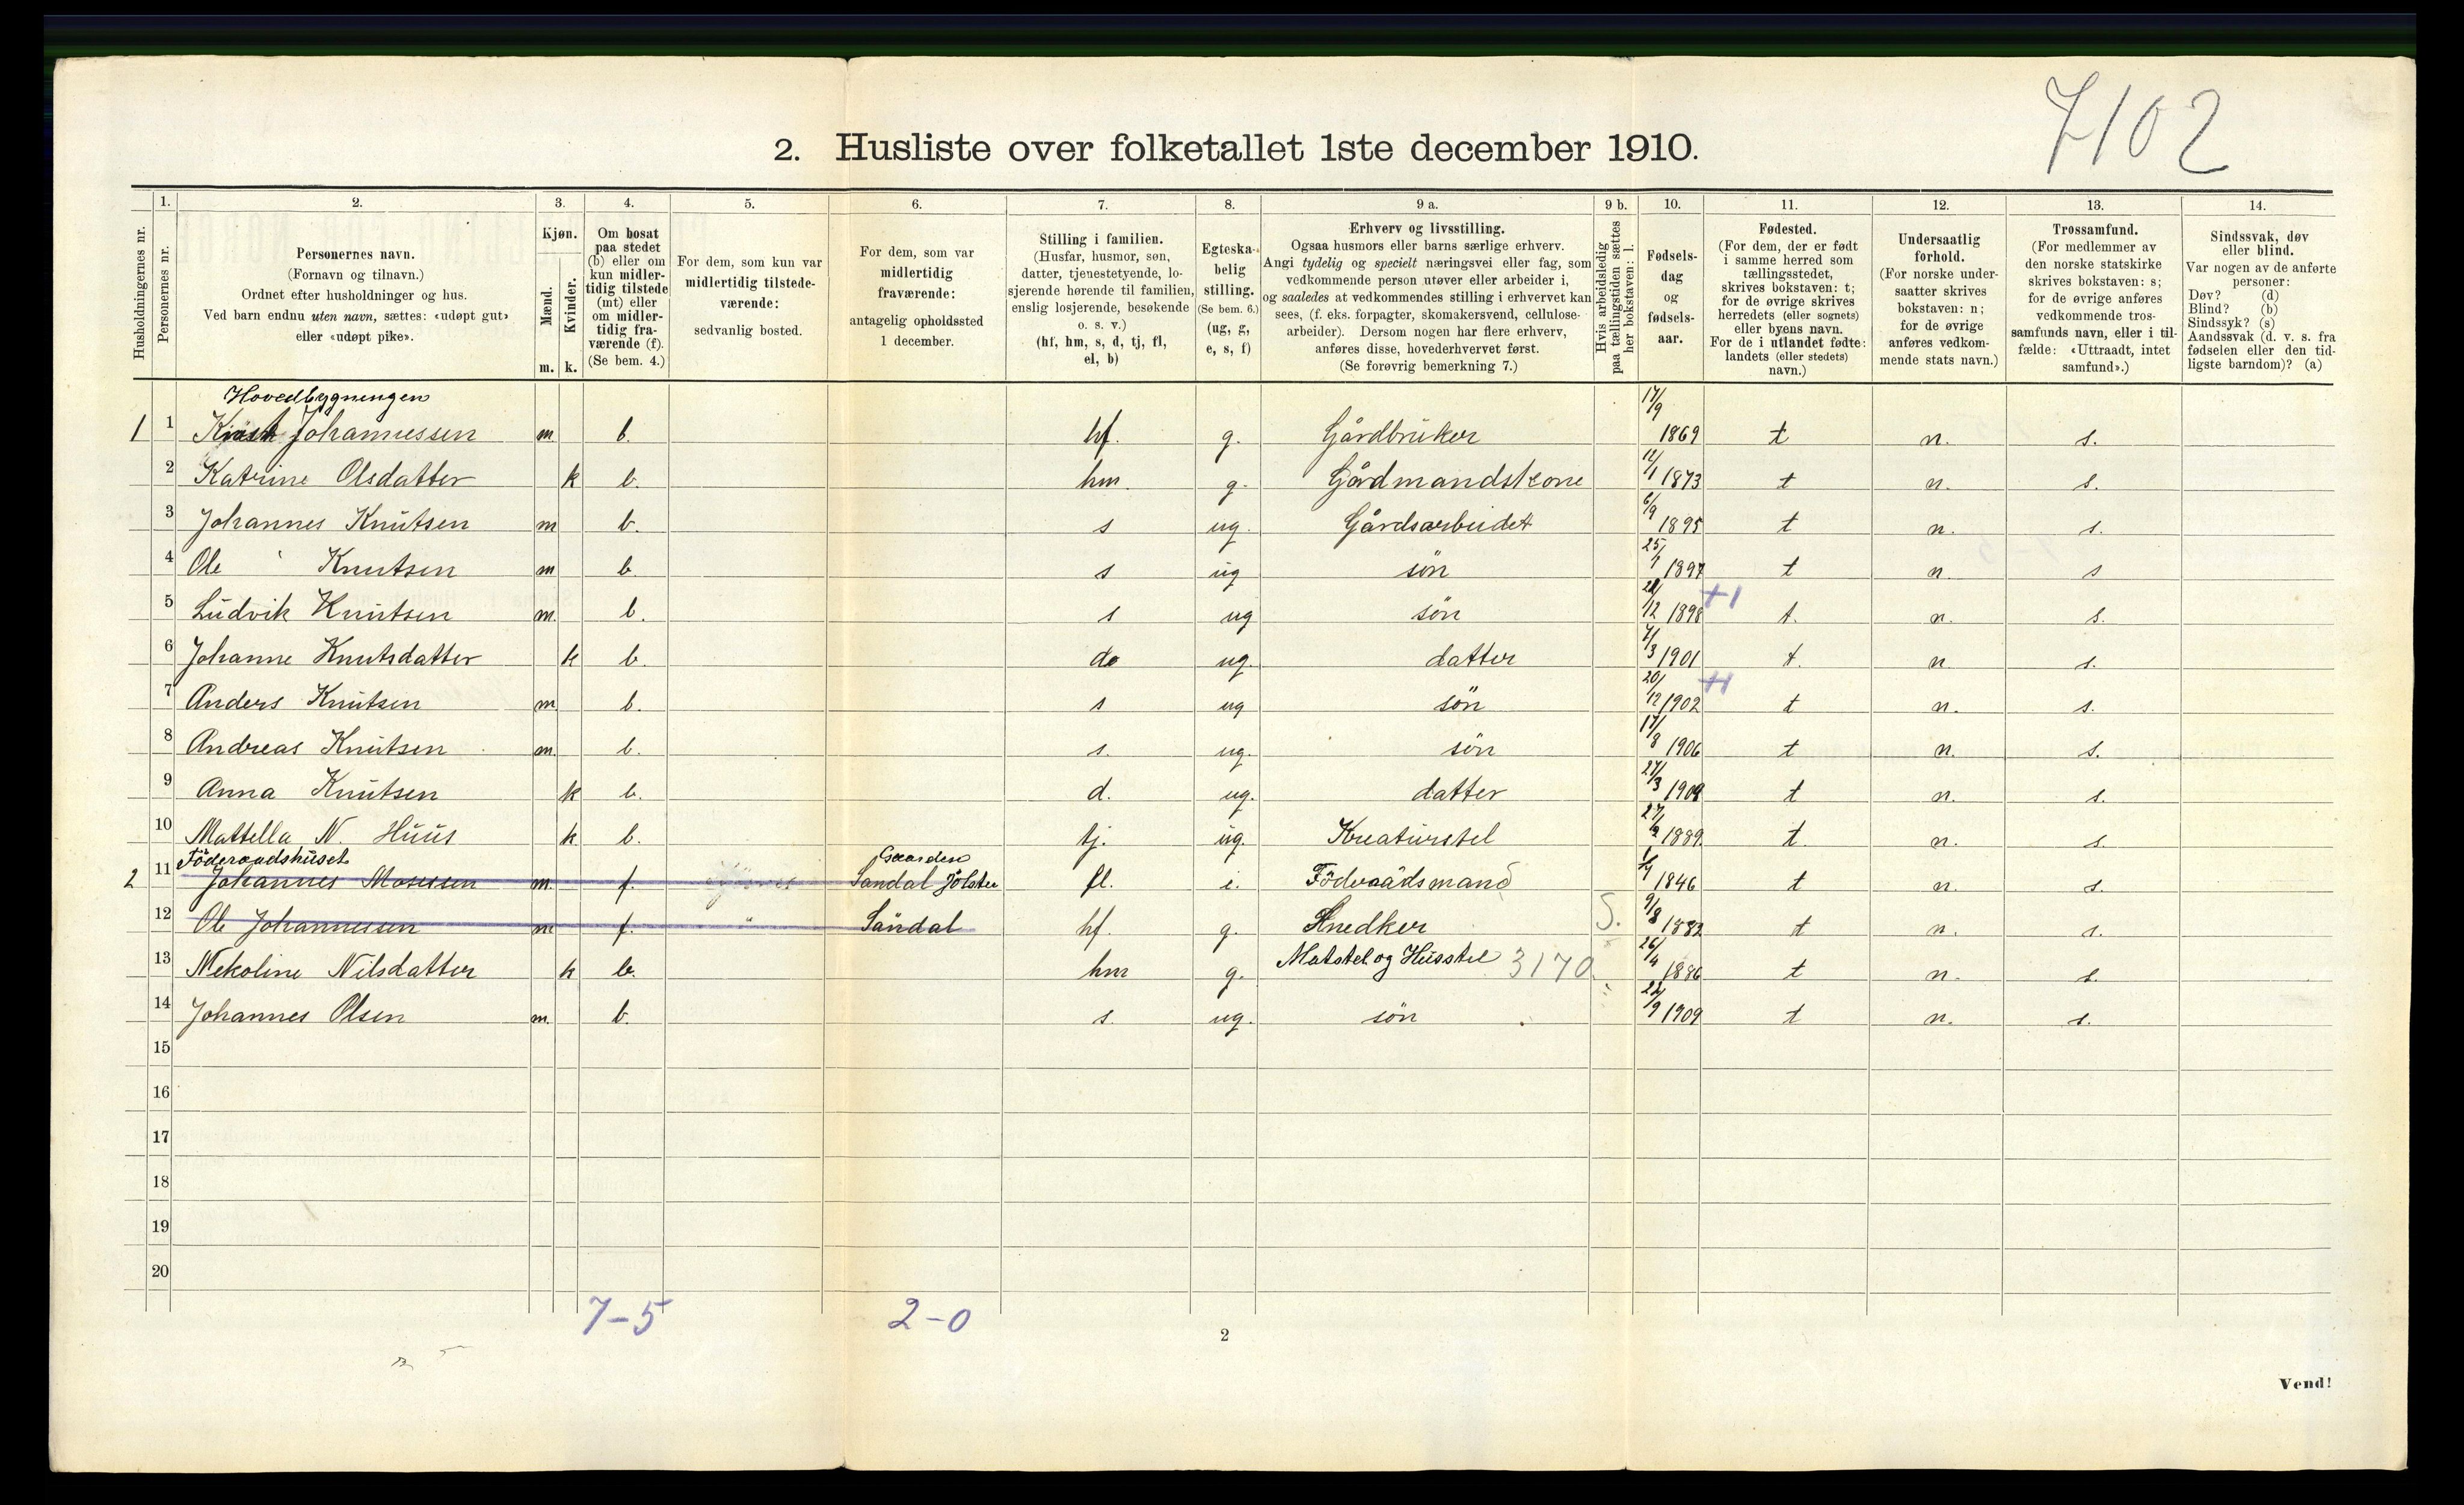 7102
2. Husliste over folketallet 1ste december 1910.
Husholdningernes nr.
1.
Personernes nr.
2.
Personernes navn.
(Fornavn og tilnavn.)
Ordnet efter husholdninger og hus.
Ved barn endnu uten navn, sættes: «udøpt gut»
eller «udøpt pike».
3.
Kjøn.
Mænd.
Kvinder.
m. k.
4.
Om bosat
paa stedet
(b) eller om
kun midler-
tidig tilstede
(mt) eller
om midler-
tidig fra-
værende (f).
(Se bem. 4.)
5.
For dem, som kun var
midlertidig tilstede-
værende:
sedvanlig bosted.
6.
For dem, som var
midlertidig
fraværende:
antagelig opholdssted
1 december.
7.
Stilling i familien.
(Husfar, husmor, søn,
datter, tjenestetyende, lo-
sjerende hørende til familien,
enslig losjerende, besøkende
o. s. v.)
(hf, hm, s, d, tj, fl,
el, b)
8.
Egteska-
belig
stilling.
(Se bem. 6.)
(ug, g,
e, s, f)
9 a.
Erhverv og livsstilling.
Ogsaa husmors eller barns særlige erhverv.
Angi tydelig og specielt næringsvei eller fag, som
vedkommende person utøver eller arbeider i,
og saaledes at vedkommendes stilling i erhvervet kan
sees, (f. eks. forpagter, skomakersvend, cellulose-
arbeider). Dersom nogen har flere erhverv,
anføres disse, hovederhvervet først.
(Se forøvrig bemerkning 7.)
9 b.
Hvis arbeidsledig
paa tællingstiden sættes
her bokstaven: l.
10.
Fødsels-
dag
og
fødsels-
aar.
11.
Fødested.
(For dem, der er født
i samme herred som
tællingsstedet,
skrives bokstaven: t;
for de øvrige skrives
herredets (eller sognets)
eller byens navn.
For de i utlandet fødte:
landets (eller stedets)
navn.)
12.
Undersaatlig
forhold.
(For norske under-
saatter skrives
bokstaven: n;
for de øvrige
anføres vedkom-
mende stats navn.)
13.
Trossamfund.
(For medlemmer av
den norske statskirke
skrives bokstaven: s;
for de øvrige anføres
vedkommende tros-
samfunds navn, eller i til-
fælde: «Uttraadt, intet
samfund».)
14.
Sindssvak, døv
eller blind.
Var nogen av de anførte
personer:
Døv? (d)
Blind? (b)
Sindssyk? (s)
Aandssvak (d. v. s. fra
fødselen eller den tid-
ligste barndom)? (a)
Hovedbygningen
1 1 Johannessen m b. hf. g. Gårdbruker 17/9 1869 t n. s.
2 Katrine Olsdatter k b. hm. g. Gårdmandskone 12/1 1873 t n. s.
3 Johannes Knutsen m b. s ug. Gårdsarbeidet 6/9 1895 t n. s.
4 Ole Knutsen m b. s ug søn 25/1 1897 t n. s
5 Ludvik Knutsen m. b. s ug søn /12 1898 t. n. s.
6 Johanne Knutsdatter k b. ug. datter /3 1901 t. n. s.
7 Anders Knutsen m b. s ug søn 20/12 1902 t n. s.
8 Andreas Knutsen m. b. s. ug. søn 17/8 1906 t n. s.
9 Anna Knutsen k b. d. ug. datter 27/3 t n. s.
10 Mattella N. Huus k b. tj. ug. Kreaturstel 1889 t. n. s.
Föderaadshuset
Gaarden
2 11 Johannes Mosessen m. f. Sandal Jölster fl. Föderaadsmand 1846 t n. s.
12 Ole Johannessen m f. Sandal hf. g. Snedker S. 9/8 1882 t n. s.
13 Nekoline Nilsdatter k b. hm g. Matstel og Husstel 3170 26/4 1886 t n. s.
14 Johannes Olsen m. b. s. ug. søn /9 1909 t n. s.
15
16
17
18
19
20
7-5
2-0
2
Vend!